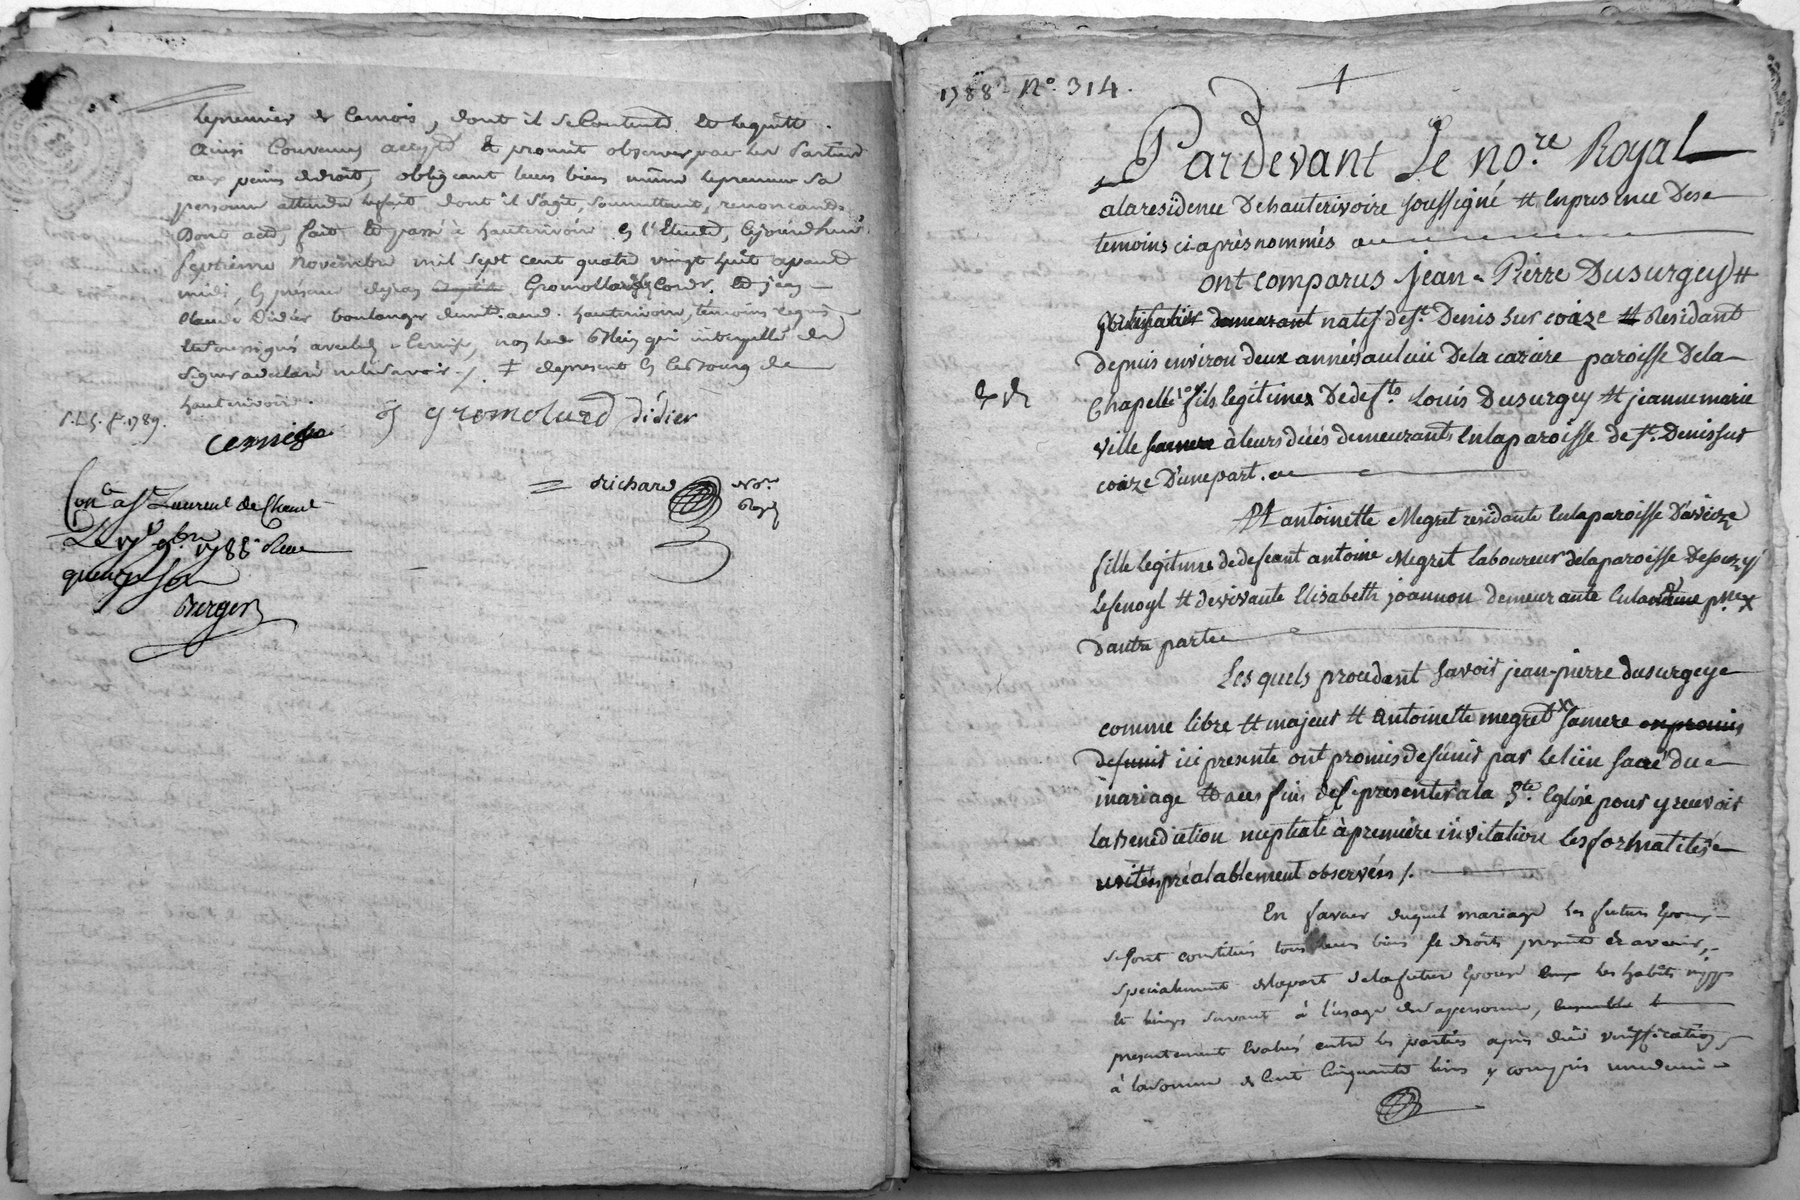 Le premier de ce mois, dont il se contente et le quitte.
Ainsi convenu accepté et promit observer par les parties
aux peines de droit, obligeant leurs biens même le preneur sa
personne attendu le fait dont il s'agit, soumettant, renonçants
Dont acte, fait et passé à hauterivoire en l'Etude, cejourd'huy
septieme novembre mil sept cent quatre vingt huit avant
midi, en présence de Gromollard Cord.r et jean
Claude Didier boulanger hauterivoire, temoins requis
et soussignés avec led. nos led. qui interpellé de
signer a declaré ne le savoir ./. de present en ce bourg de
hauterivoire.
1789.
gromolard didier
richard no.re
Royal
Con.lé a St Laurent de Cham.t
Le 9.bre 1788 Reçu
quen
Burger
1788 N.o 314.
Pardevant Le no.re Royal
ala residence Dehauterivoire soussigné et enpresence Des
temoins ci-après nommés
ont comparus jean-Pierre Dusurgey et
demeurant natif de St. Denis sur coize et Residant
depuis environ deux années au lieu De la cazire paroisse De la
Chapelle fils legitime De def.ts Louis Dusurgey et jeanne marie
ville à leurs décés demeurants En la paroisse de St. Denis sur
coize D'une part.
Et antoinette Megret residante En la paroisse D'aveize
fille legitime de defeant antoine Megret laboureur de la paroisse De souzy
Et devivante Elisabeth joannon demeurante
D'autre part
Les quels procedant savoir jean-pierre dusurgey
comme libre et majeur et Antoinette megret x sa mere en promis
de sunir ici presente ont promis de sunir par le lien sacré du
mariage et aces fins de se presenter a la S.te Eglise pour y recevoir
La Benediction nuptiale à première invitation les formalités
usitées préalablement observées /.
En faveur duquel mariage les futurs Epoux
se sont constitués tous leurs biens et droits presents et avenir,
specialement de la part de la future Epouse les habits nippes
et linges servant à l'usage de sa personne, ensemble
presentement evalués entre les parties après due veriffication
à la somme de cent cinquante livres y compris